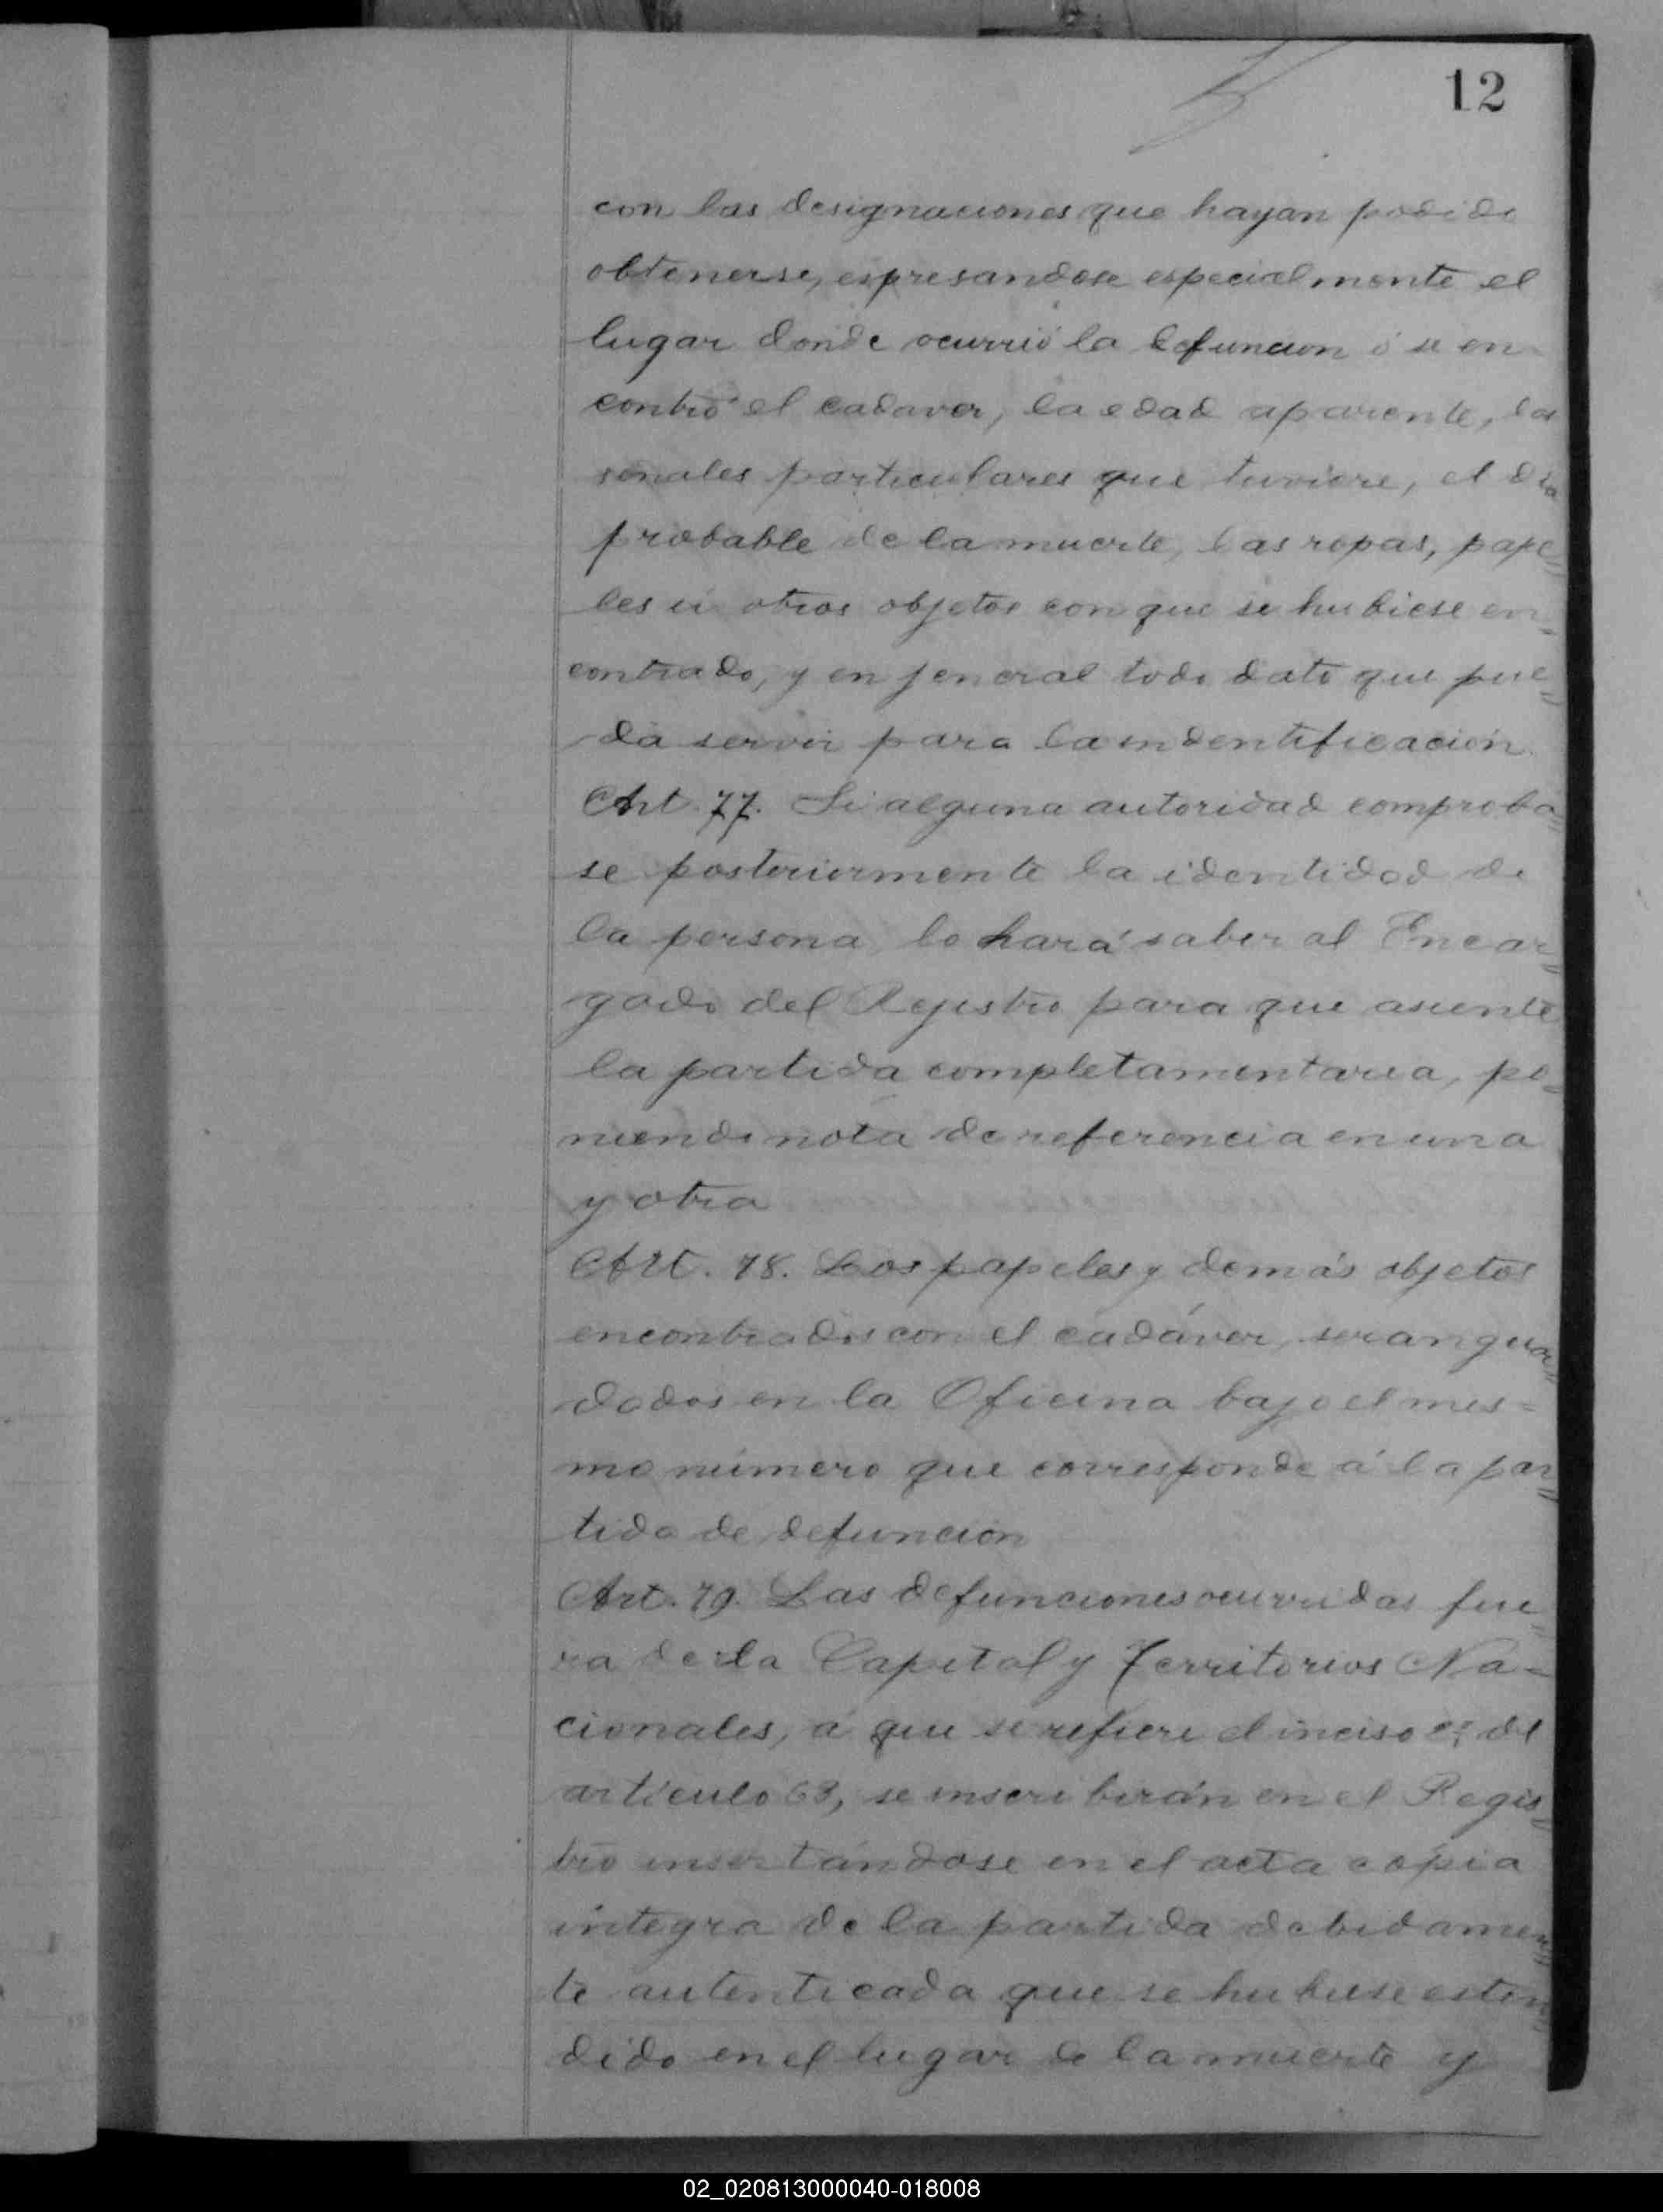 12
con las designaciones que hayan podido
obtenerse, espresandose especialmente el
lugar donde ocurrió la defuncion ó se en-
contró el cadaver, la edad aparente, las
senales particulares que tuviere, el dia
probable de la muerte, las ropas, pape=
les ú otros objetos con que se hubiese en=
contrado, y en jeneral todo dato que pue=
da servir para la indentificación.
Art. 77. Si alguna autoridad comproba=
se posteriormente la identidad de
la persona, lo hará saber al Encar=
gado del Rejistro para que asiente
la partida completamentaria, po=
niendo nota de referencia en una
y otra
Art. 78. Los papeles y demás objetos
encontrados con el cadáver, seran guar=
dados en la Oficina bajo el mis=
mo número que corresponde á la par=
tida de defuncion
Art. 79. Las defunciones ocurridas fue=
ra de la Capital y Territorios Na=
cionales, á que se refiere el inciso del
artículo 68, se inscribirán en el Regis=
tro insertándose en el acta cópia
integra de la partida debidamen=
te autenticada que se hubiese esten=
dido en el lugar de la muerte y
02_020813000040-018008